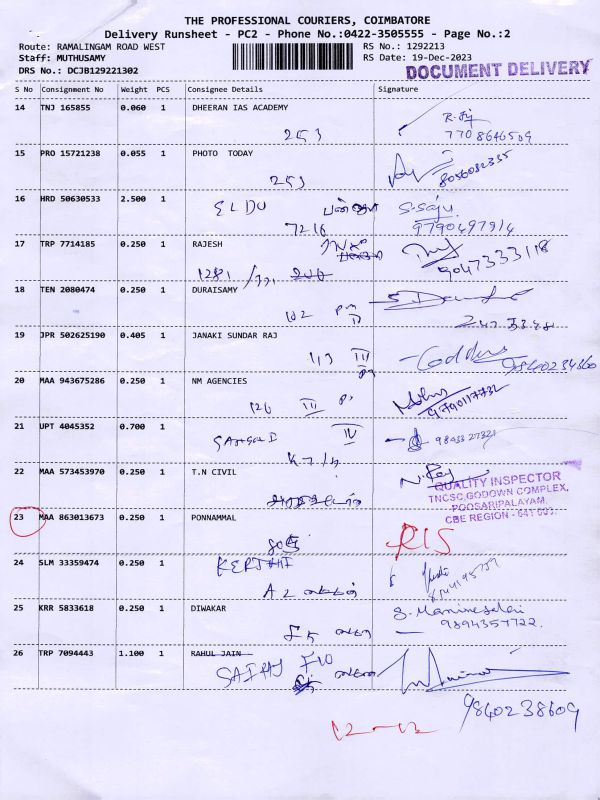 THE PROFESSIONAL COURIERS, COIMBATORE
Delivery Runsheet - PC2 - Phone No.:0422-3505555 - Page No.:2
Route: RAMALINGAM ROAD WEST RS No.: 1292213
Staff: MUTHUSAMY RS Date: 19-Dec-2023
DRS No.: DCJB129221302 DOCUMENT DELIVERY
S No Consignment No Weight PCS Consignee Details Signature
14 TNJ 165855 0.060 1 DHEERAN IAS ACADEMY
253 7708646509
15 PRO 15721238 0.055 1 PHOTO TODAY
253 8056082335
16 HRD 50630533 2.500 1 ELDU
7216 S.Saju 9790497914
17 TRP 7714185 0.250 1 RAJESH
1281 9047333118
18 TEN 2080474 0.250 1 DURAISAMY
102
19 JPR 502625190 0.405 1 JANAKI SUNDAR RAJ
113 III 9840234360
20 MAA 943675286 0.250 1 NM AGENCIES
126 III 9790117732
21 UPT 4045352 0.700 1
IV 9843327321
22 MAA 573453970 0.250 1 T.N CIVIL
QUALITY INSPECTOR
TNCSC, GODOWN COMPLEX,
POOSARIPALAYAM,
CBE REGION - 641 003.
23 MAA 863013673 0.250 1 PONNAMMAL
RIS
24 SLM 33359474 0.250 1 KERTHI
A2
25 KRR 5833618 0.250 1 DIWAKAR
F5 9894357722
26 TRP 7094443 1.100 1 RAHUL JAIN
SAIRAJ F10
9840238609
12-12